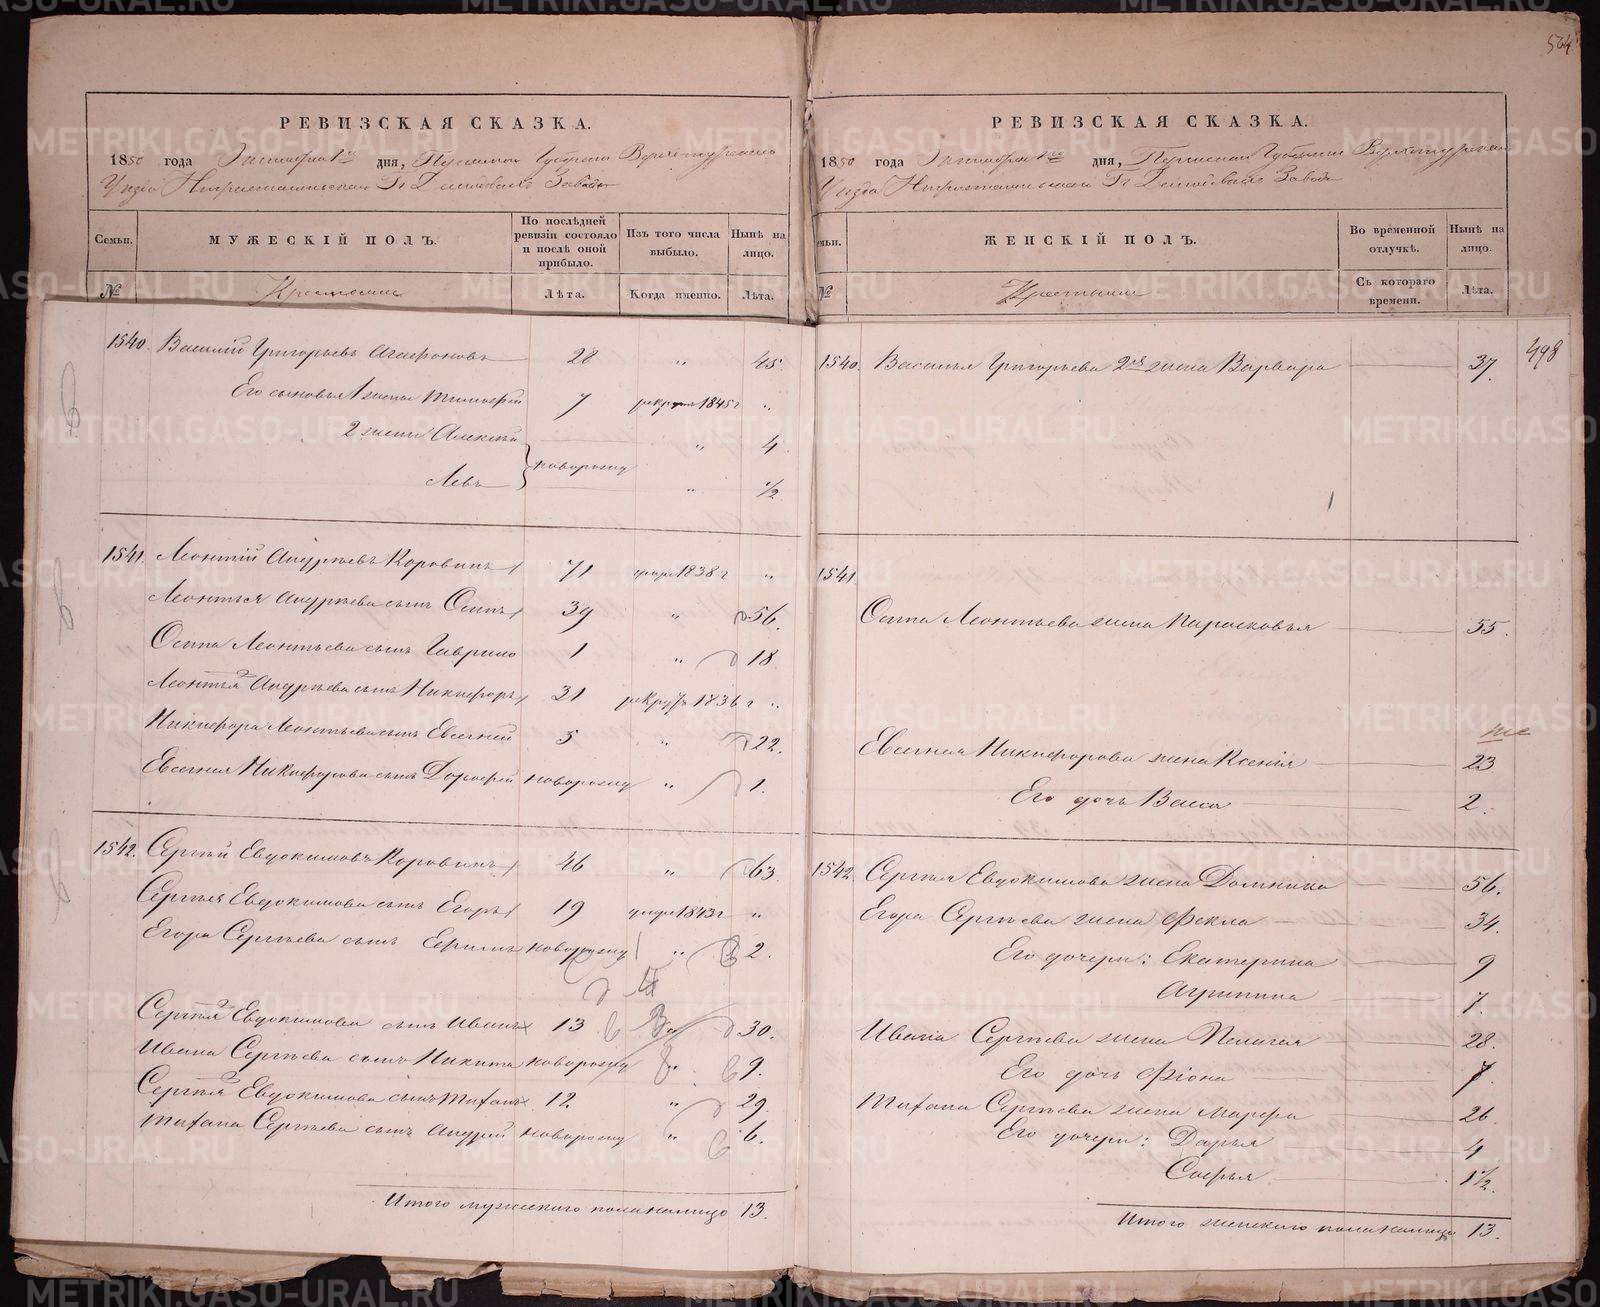 564
РЕВИЗСКАЯ СКАЗКА.
1850 года дня, Пермской Губернии Верхотурскаго
Уѣзда Нижнетагильскаго Гг. Демидовыхъ Завода
Семьи.
МУЖЕСКІЙ ПОЛЪ.
По послѣдней ревизіи состояло и послѣ оной прибыло.
Изъ того числа выбыло.
Нынѣ на лицо.
№
Крестьяне
Лѣта.
Когда именно.
Лѣта.
1540. Василій Григорьевъ Агафоновъ 28 " 45.
Его сыновья 1 жены Тимофей 7 рекрут 1845 г "
2 жены Алексѣй " 4
новорожд
Левъ " 1/2
1541. Леонтій Андреевъ Коровинъ 71 умре 1838 г "
Леонтья Андреева сынъ Осипъ 39 " 56.
Осипа Леонтьева сынъ Гаврило 1 " 18
Леонтья 2 Андреева сынъ Никифоръ 31 рекрутъ 1836 г "
Никифора Леонтьева сынъ Евсегней 5 " 22.
Евсегнея Никифорова сынъ Дорофей новорожд " 1.
1542. Сергѣй Евдокимовъ Коровинъ 46 " 63
Сергѣя Евдокимова сынъ Егоръ 19 умре 1843 г "
Егора Сергѣева сынъ Ефимъ новорожд " 2.
Сергѣя 2 Евдокимова сынъ Иванъ 13 " 30.
Ивана Сергѣева сынъ Никита новорожд " 9.
Сергѣя 3 Евдокимова сынъ Титъ 12 " 29
Сергѣева сынъ Андрей новорожд " 6.
Итого мужескаго пола налицо 13.
РЕВИЗСКАЯ СКАЗКА.
1850 года дня, Пермской Губерніи Верхотурскаго
Уѣзда Нижнетагильскаго Гг. Демидовыхъ Завода
ЖЕНСКІЙ ПОЛЪ.
Во временной отлучкѣ.
Нынѣ на лицо.
№
Крестьяне
Съ котораго времени.
Лѣта.
498
1540. Василья Григорьева 2я жена Варвара 37.
1541
Осипа Леонтьева жена Парасковья 55.
Евсегнея Никифорова жена Ксенія 23
Его дочь Васса 2.
1542. Сергѣя Евдокимова жена Домника 56.
Егора Сергѣева жена Фекла 34.
Его дочери: Екатерина 9
Агрипина 7.
Ивана Сергѣева жена Пелагея 28.
Его дочь Фіона 7.
Сергѣева жена Марфа 26
Его дочери: Дарья 4
Софья 1 1/2.
Итого женскаго пола налицо 13.
METRIKI.GASO-URAL.RU